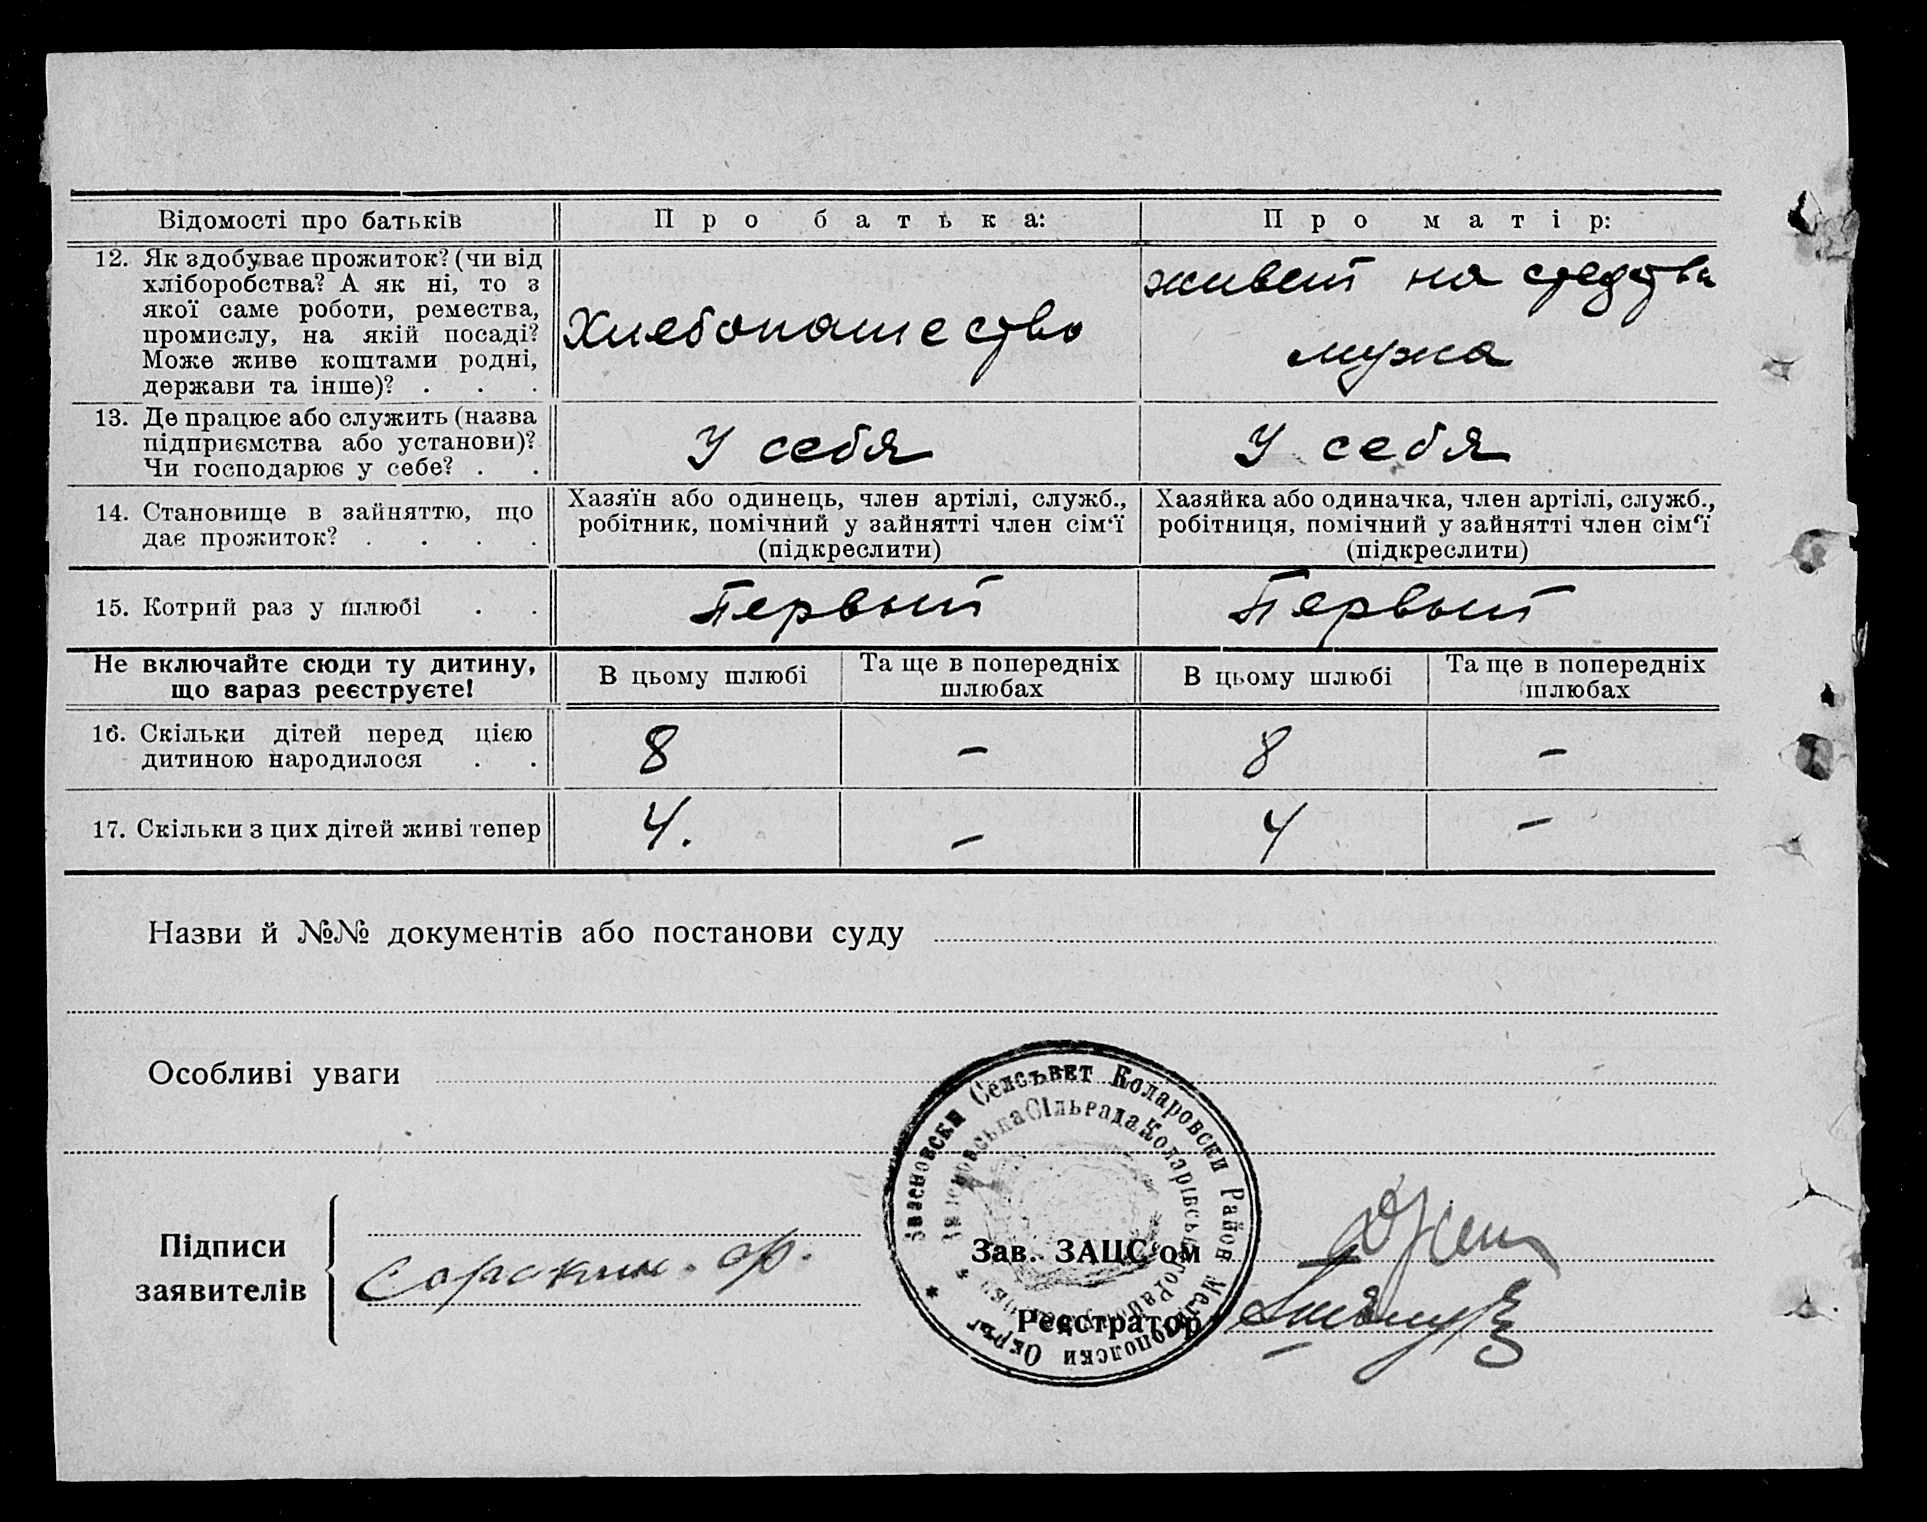 Відомості про батьків
Про батька:
Про матір:
12. Як здобуває прожиток? (чи від
хліборобства? А як ні, то з
якої саме роботи, ремества,
промислу, на якій посаді?
Може живе коштами родні,
держави та інше)? . . .
Хлебопашество
живет на средства
мужа
13. Де працює або служить (назва
підприємства або установи)?
Чи господарює у себе? . .
У себя
У себя
14. Становище в зайняттю, що
дає прожиток? . . . .
Хазяїн або одинець, член артілі, служб.,
робітник, помічний у зайнятті член сім'ї
(підкреслити)
Хазяйка або одиначка, член артілі, служб.,
робітниця, помічний у зайнятті член сім'ї
(підкреслити)
15. Котрий раз у шлюбі . .
Первый
Первый
Не включайте сюди ту дитину,
що зараз реєструєте!
В цьому шлюбі
Та ще в попередніх
шлюбах
В цьому шлюбі
Та ще в попередніх
шлюбах
16. Скільки дітей перед цією
дитиною народилося . .
8
–
8
–
17. Скільки з цих дітей живі тепер
4.
–
4
–
Назви й №№ документів або постанови суду
Особливі уваги
Селсъвет Коларовски Район Мелитополски Окръг
Сільрада Коларівськ
Підписи
заявителів
Сорокин. Ф.
Зав. ЗАЦС'ом
Реєстратор